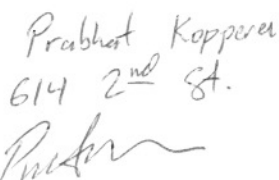 Prabhat Kopperu
614 2nd St.